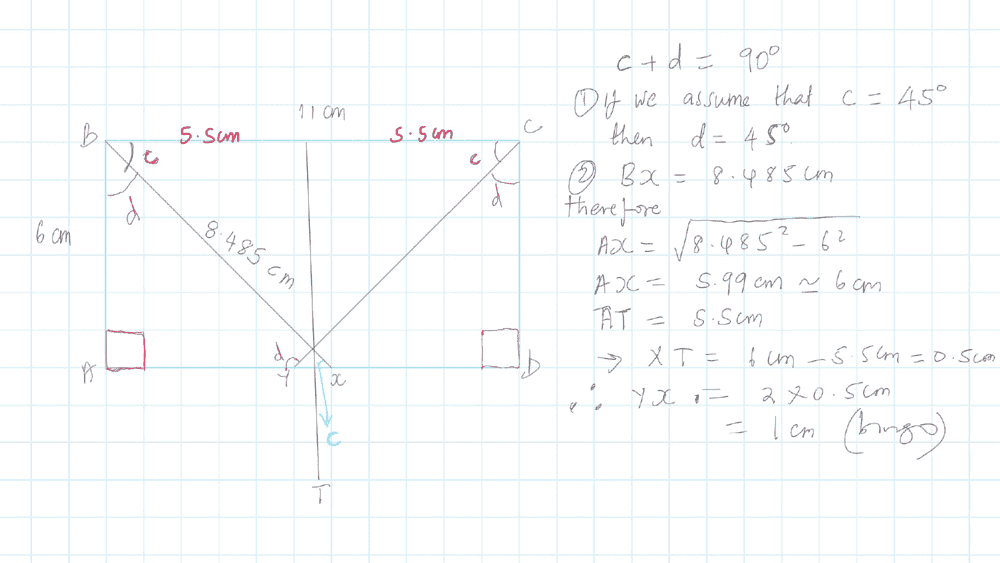 11 cm
B 5.5cm 5.5cm C
c c
d d
6 cm
8.485 cm
d
A Y x D
c
T
c + d = 90°
① If we assume that c = 45°
then d = 45°
② Bx = 8.485 cm
therefore
Ax = √8.485² - 6²
Ax = 5.99cm ≃ 6cm
AT = 5.5cm
→ XT = 6cm - 5.5cm = 0.5cm
∴ Yx = 2 × 0.5cm
= 1 cm (bingo)